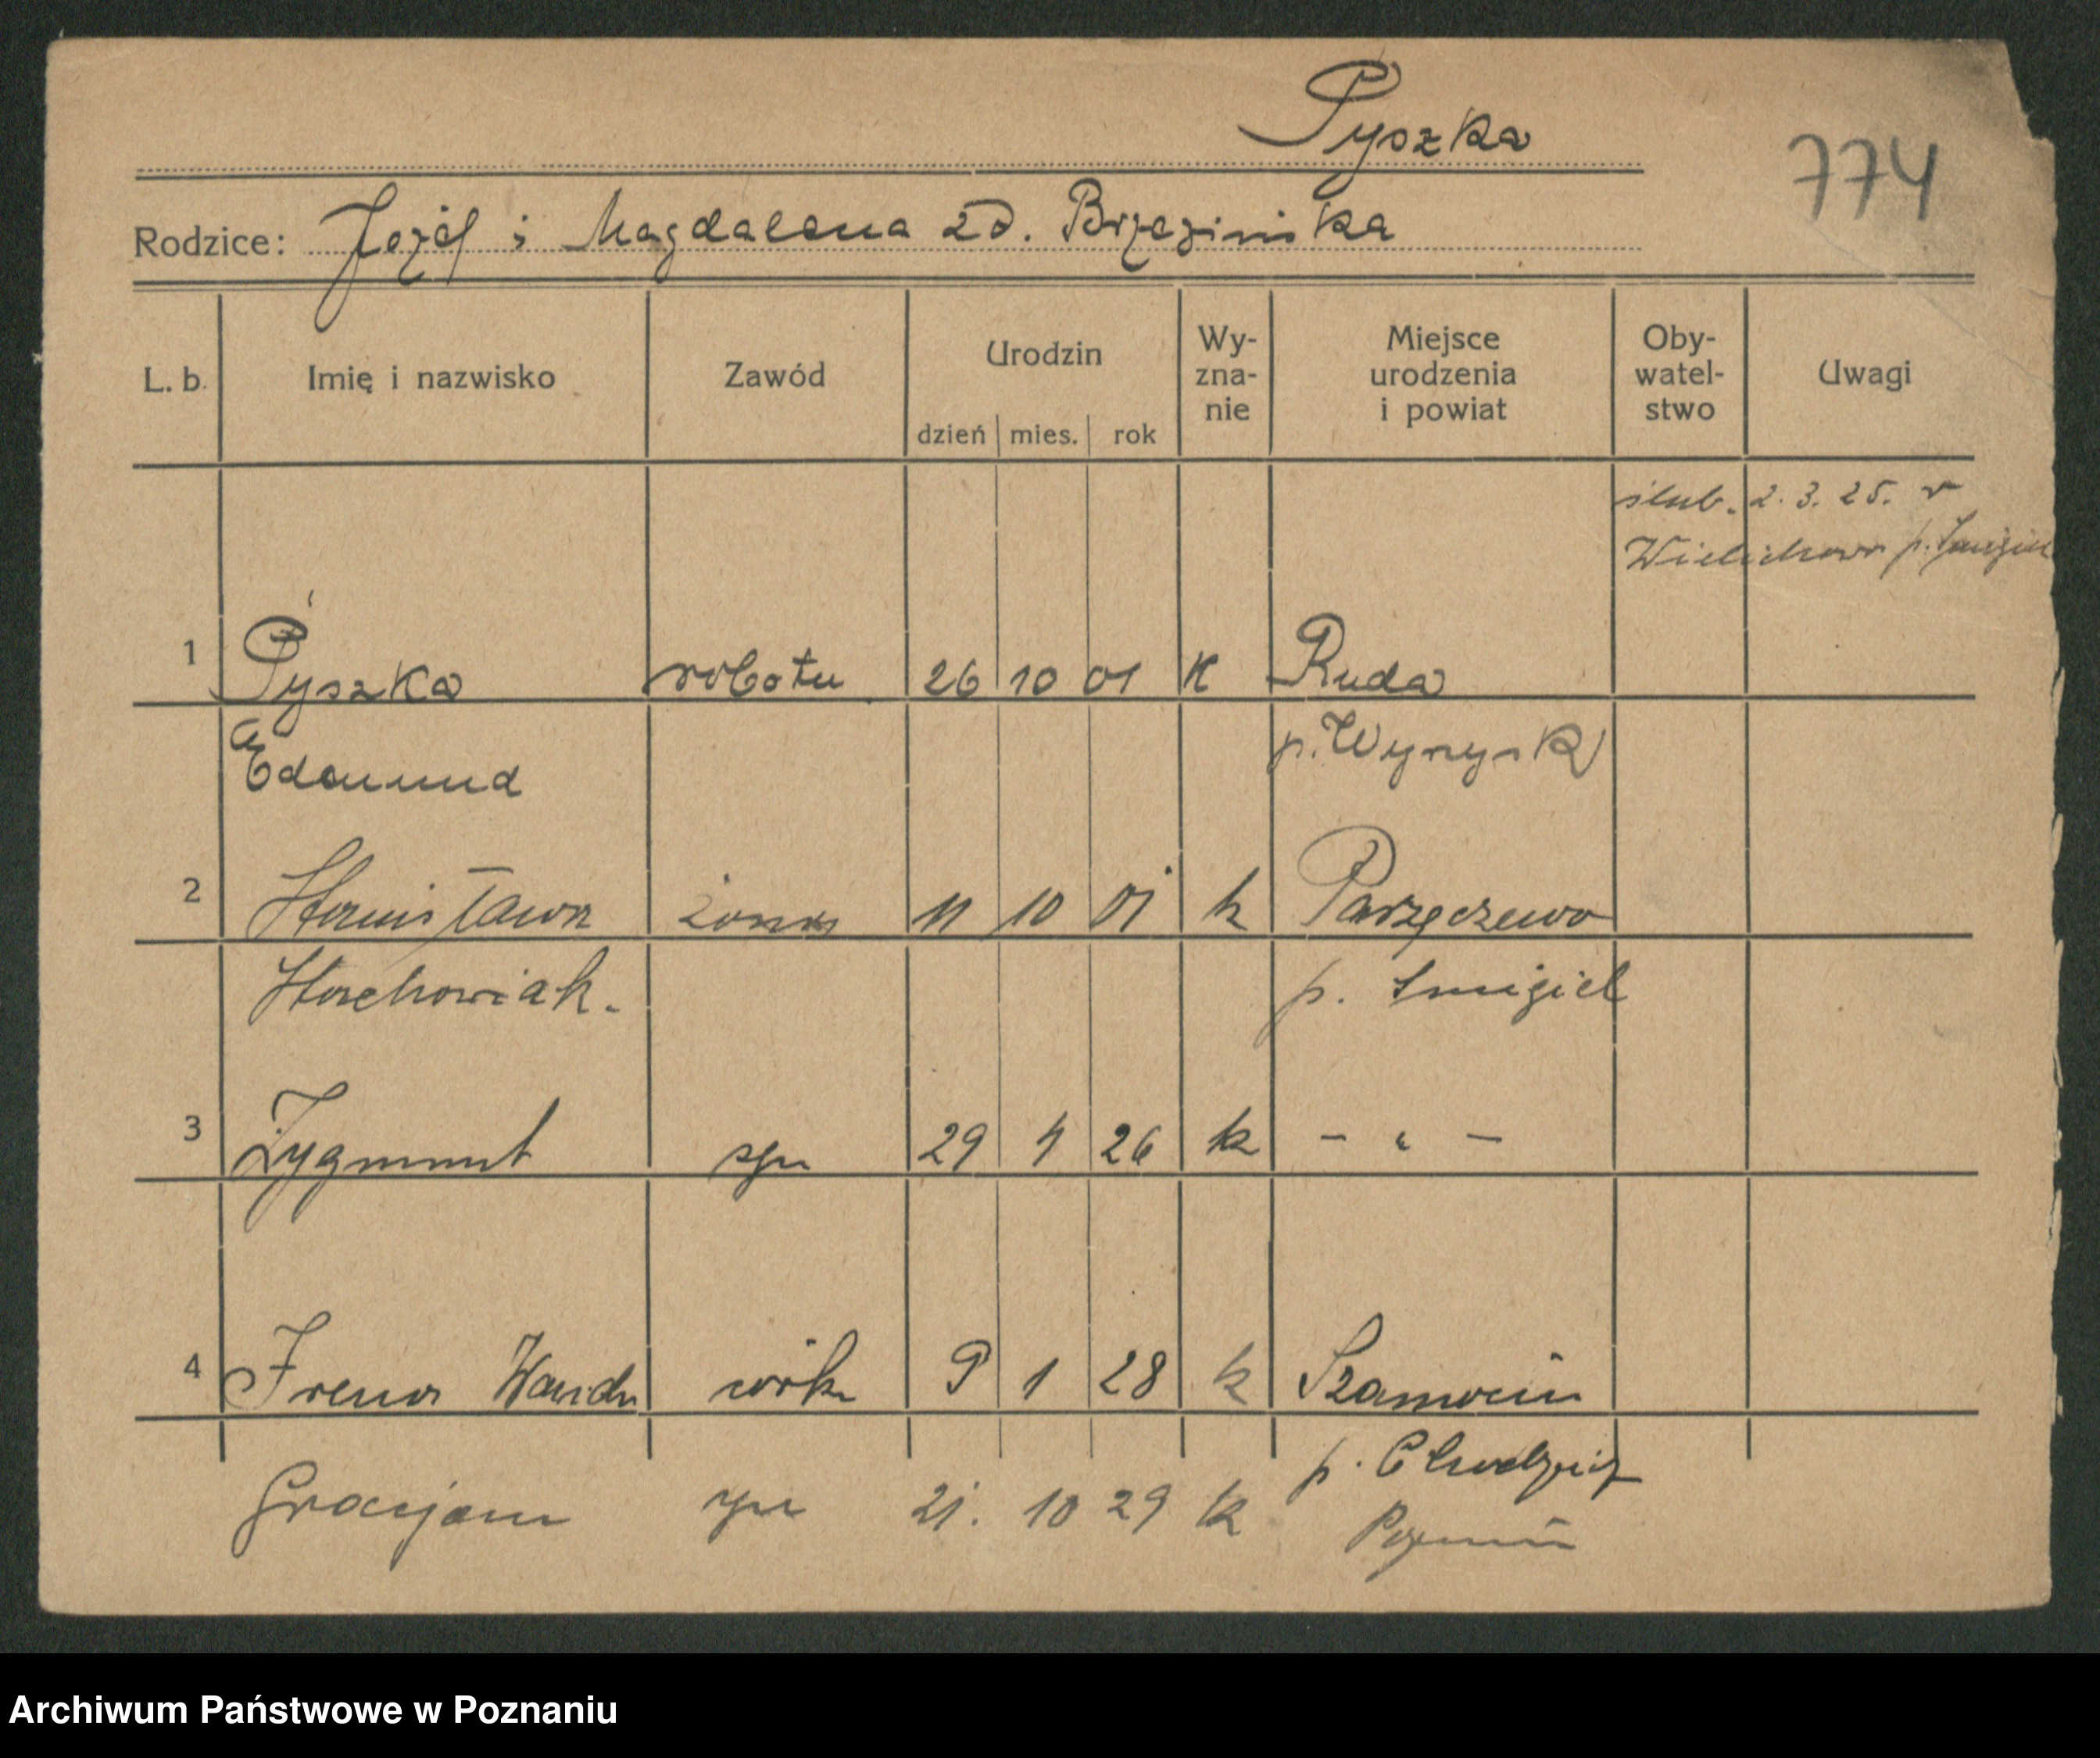 Pyszka
774
Rodzice: Józef i Magdalena zd. Brzezinska
L. b. Imię i nazwisko Zawód Urodzin dzień mies. rok Wy-zna-nie Miejsce urodzenia i powiat Oby-watel-stwo Uwagi
ślub. 2. 3. 25. w
Wielichowo p. Śmigiel
1 Pyszka robotn 26 10 01 K Ruda
Edmund p. Wyrzysk
2 Stanisława żona 11 10 01 k Parzęczewo
Stachowiak. p. Smigiel
3 Zygmunt syn 29 4 26 k - " -
4 Irena Wanda córk 9 1 28 k Szamocin
p. Chodzież
Gracjan syn 21. 10 29 k Poznań
Archiwum Państwowe w Poznaniu